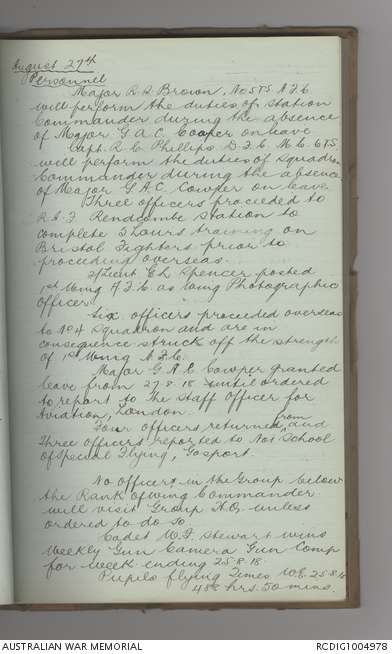 August 27th
Personnel
Major R A Brown, No 5 T.S A.F.C
will perform the duties of Station
Commander during the absence
of Major G A C. Cooper on leave
Capt. R. C. Phillips D.F.C. M.C. 6 T.S.
will perform the duties of Squadron
Commander during the absence
of Major G.A.C. Cowper on leave.
Three officers proceeded to
R.A.F Rendcombe Station to
complete 5 hours training on
Bristol Fighters prior to
proceeding overseas.
2/Lieut E L Spencer posted
1st Wing A.F.C as Wing Photographic
Officer
Six officers proceeded overseas
to No 4 Squadron and are in
consequence struck off the strength
of 1st Wing A.F.C.
Major G.A.C. Cowper granted
leave from 27.8.18 until ordered
to report to the Staff Officer for
Aviation, London.
Four officers returned from and
Three officers reported to No 1 School
of Special Flying, Gosport.
No officers in the Group below
the Rank of Wing Commander
will visit Group H.Q. unless
ordered to do so
Cadet W.F. Stewart wins
Weekly Gun Camera Gun Comp
for week ending 25.8.18.
Pupils flying Times W.E. 25.8.18
488 hrs. 50 mins.
AUSTRALIAN WAR MEMORIAL
RCDIG1004978